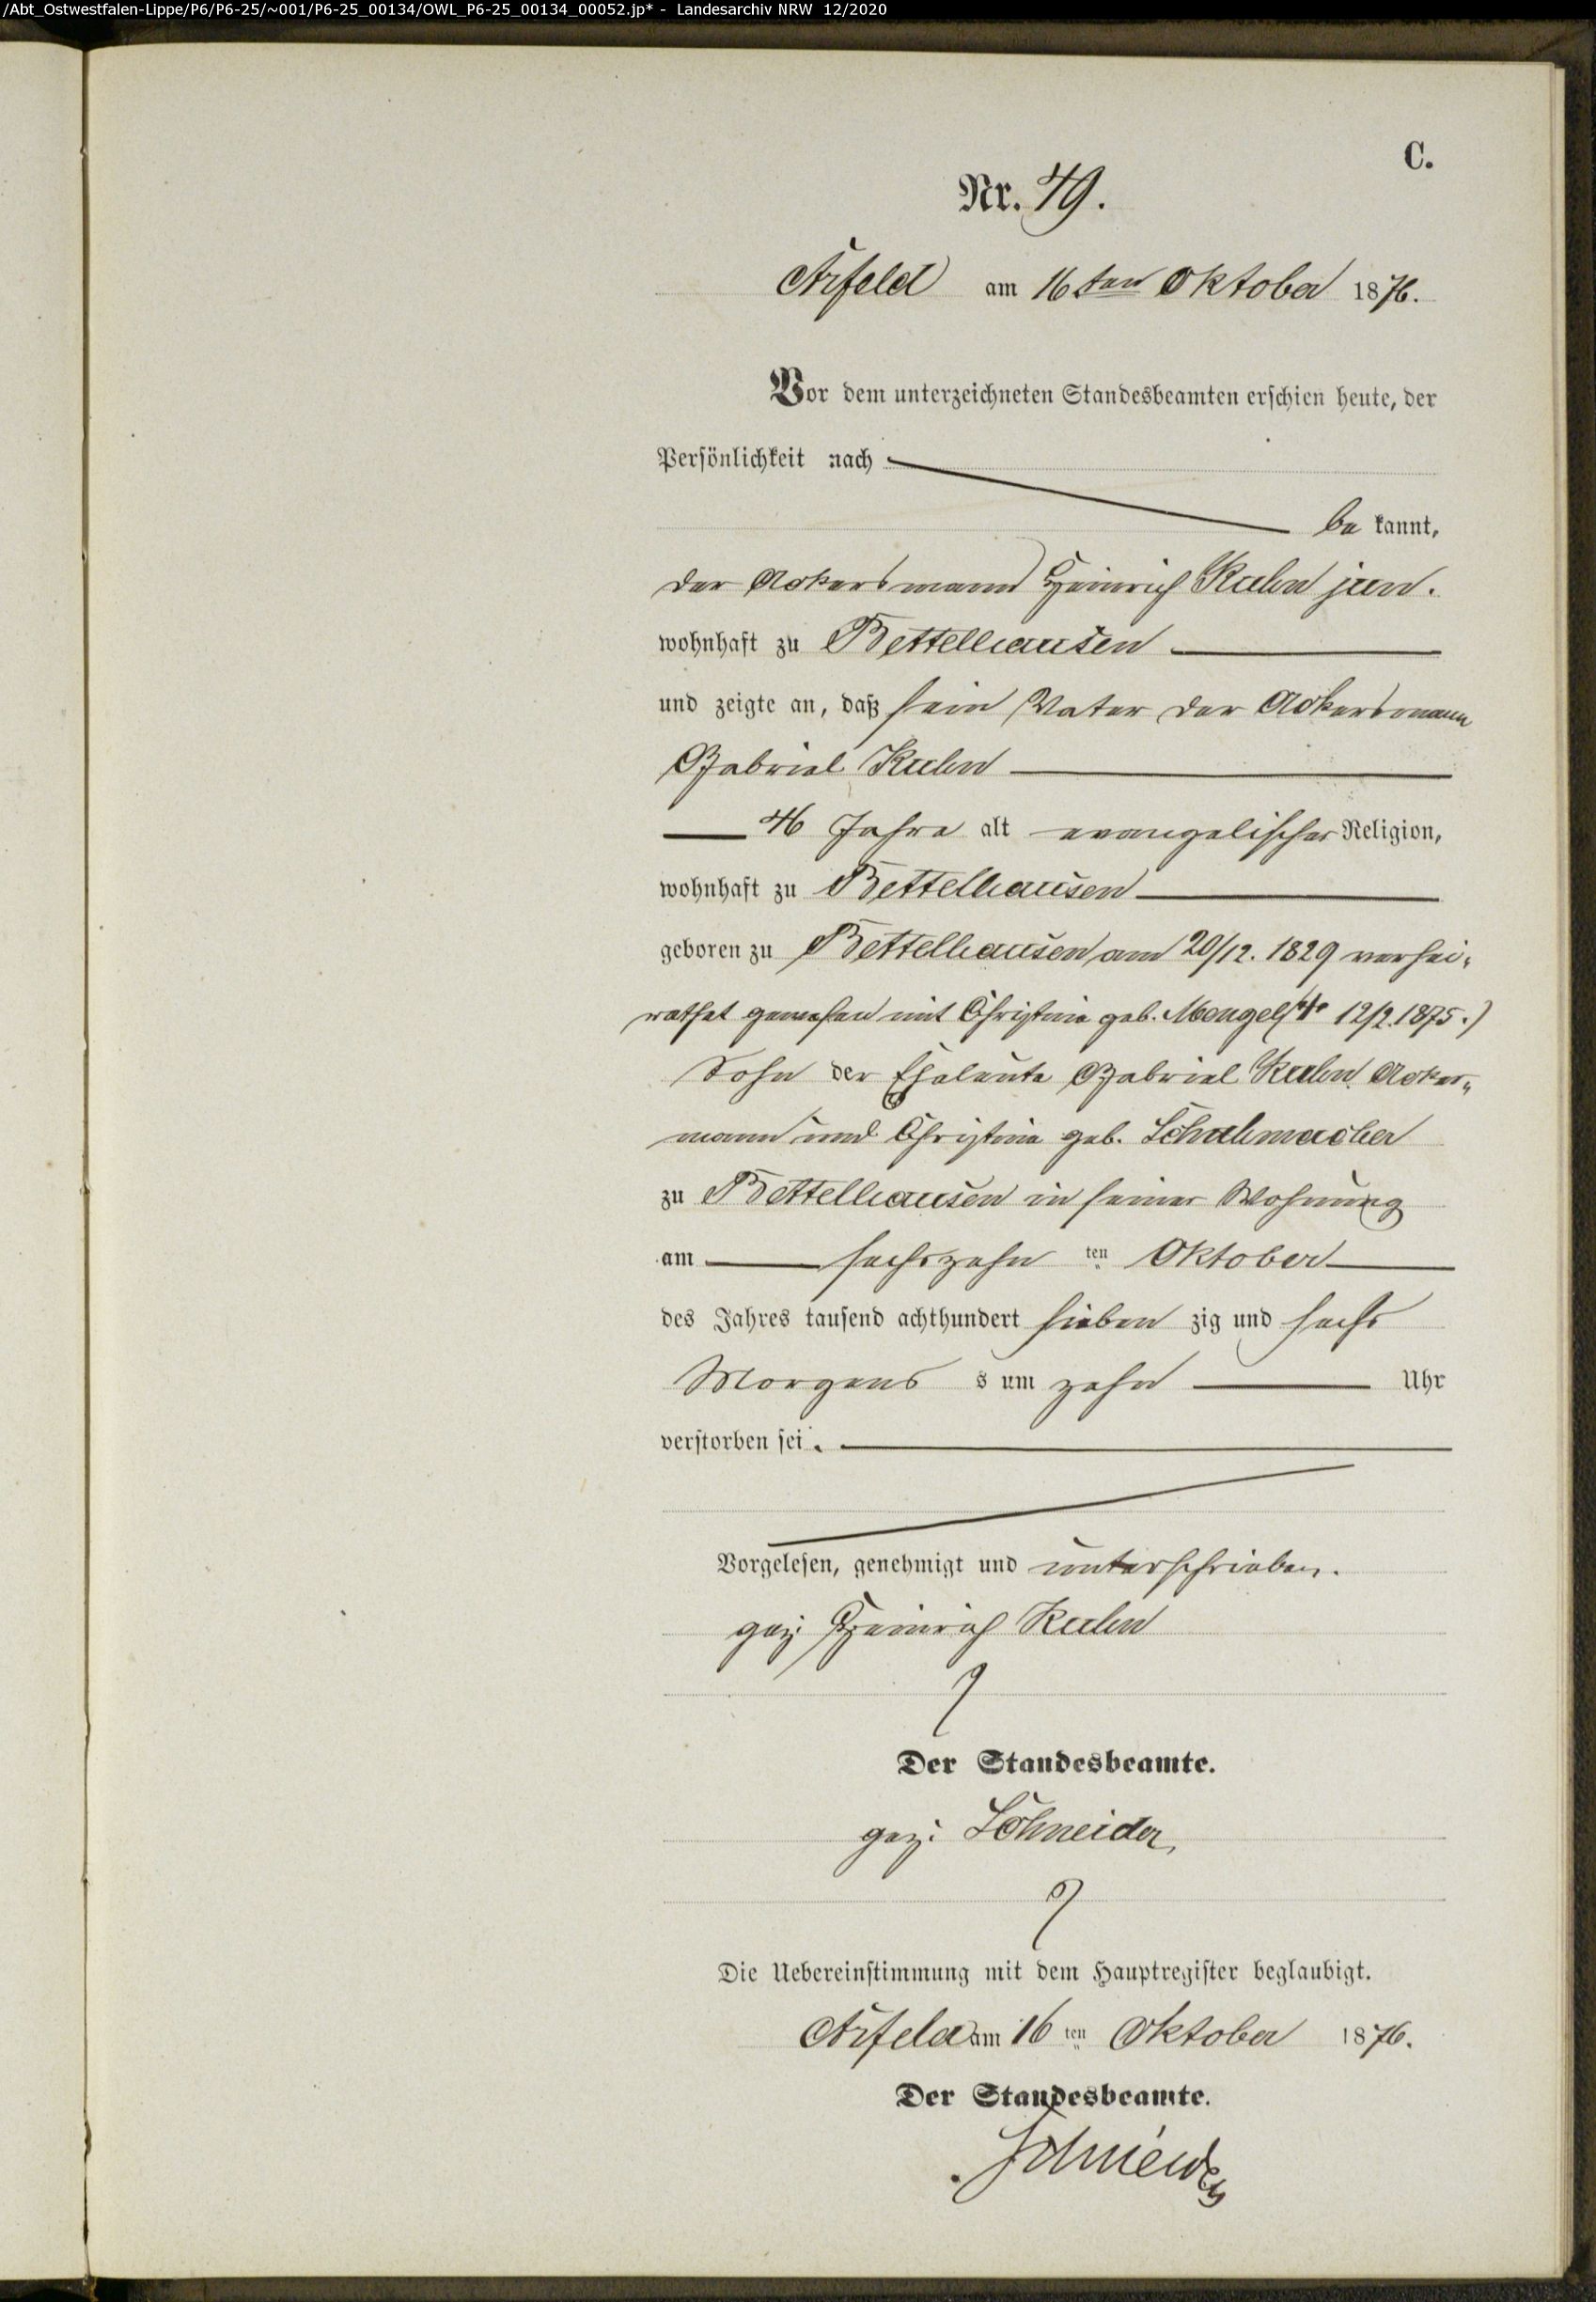 /Abt_Ostwestfalen-Lippe/P6/P6-25/~001/P6-25_00134/OWL_P6-25_00134_00052.jp* - Landesarchiv NRW 12/2020
C.
Nr. 49.
Arfeld am 16ten Oktober 1876.
Vor dem unterzeichneten Standesbeamten erschien heute, der
Persönlichkeit nach
be kannt,
der Ackersmann Heinrich Kuhn jun.
wohnhaft zu Bettelhausen
und zeigte an, daß sein Vater der Ackersmann
Gabriel Kuhn
46 Jahre alt evangelischer Religion,
wohnhaft zu Bettelhausen
geboren zu Bettelhausen am 20/12. 1829 verhei-
rathet gewesen mit Christine geb. Mengel († 12/2. 1875.)
Sohn der Eheleute Gabriel Kuhn Acker-
mann und Christine geb. Schuhmacher
zu Bettelhausen in seiner Wohnung
am sechszehn ten Oktober
des Jahres tausend achthundert sieben zig und sechs
Morgens s um zehn Uhr
verstorben sei.
Vorgelesen, genehmigt und unterschrieben.
gez. Heinrich Kuhn
Der Standesbeamte.
gez: Schneider,
Die Uebereinstimmung mit dem Hauptregister beglaubigt.
Arfeld am 16 ten Oktober 1876.
Der Standesbeamte.
Schneider